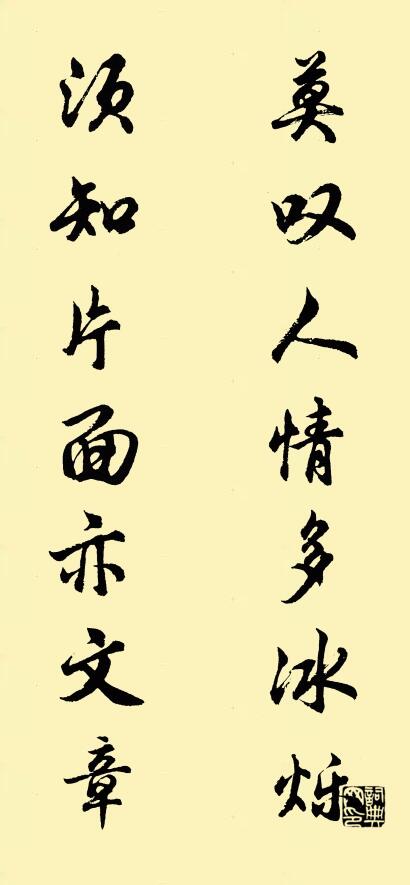 莫叹人情多冰烁
须知片面亦文章